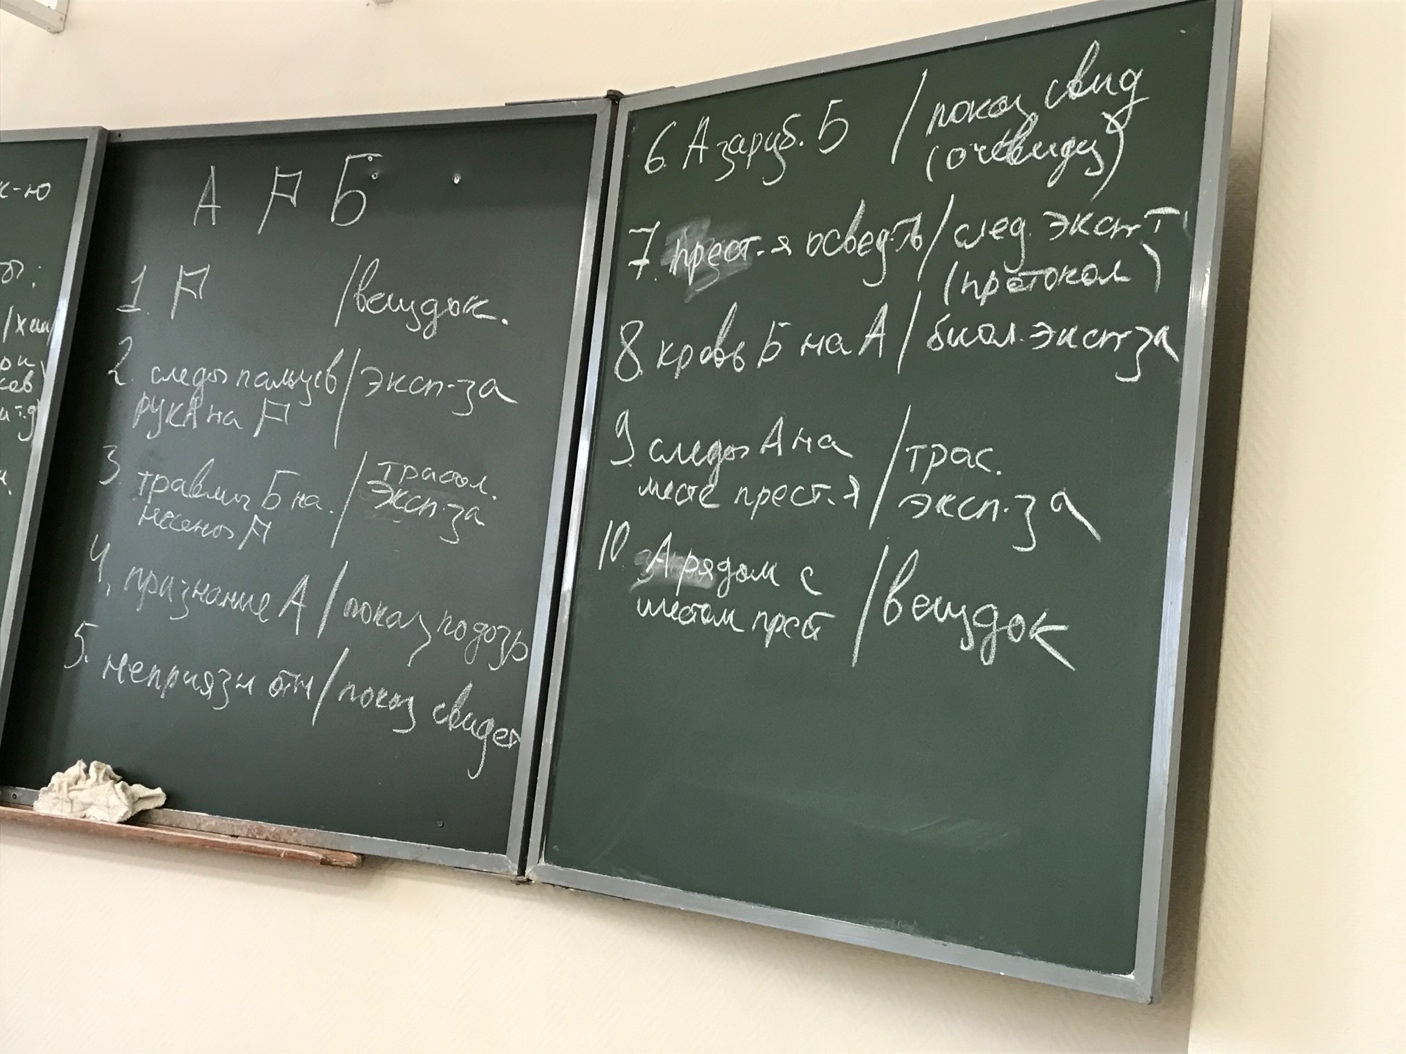 к-ю
А Б
1. / вещдок.
2. следы пальцев / эксп-за
рук А на
3 травмы Б на- / трасол.
несены / эксп-за
4, признание А / показ подозр
5. неприязн отн / показ свидет
6. А заруб. Б / показ свид
(очевидц)
7. прест-я / след. эксп-т
(протокол)
8. кровь Б на А / биол. эксп-за
9. следы А на / трас.
месте прест-я / эксп-за
10. А рядом с
местом прест / вещдок